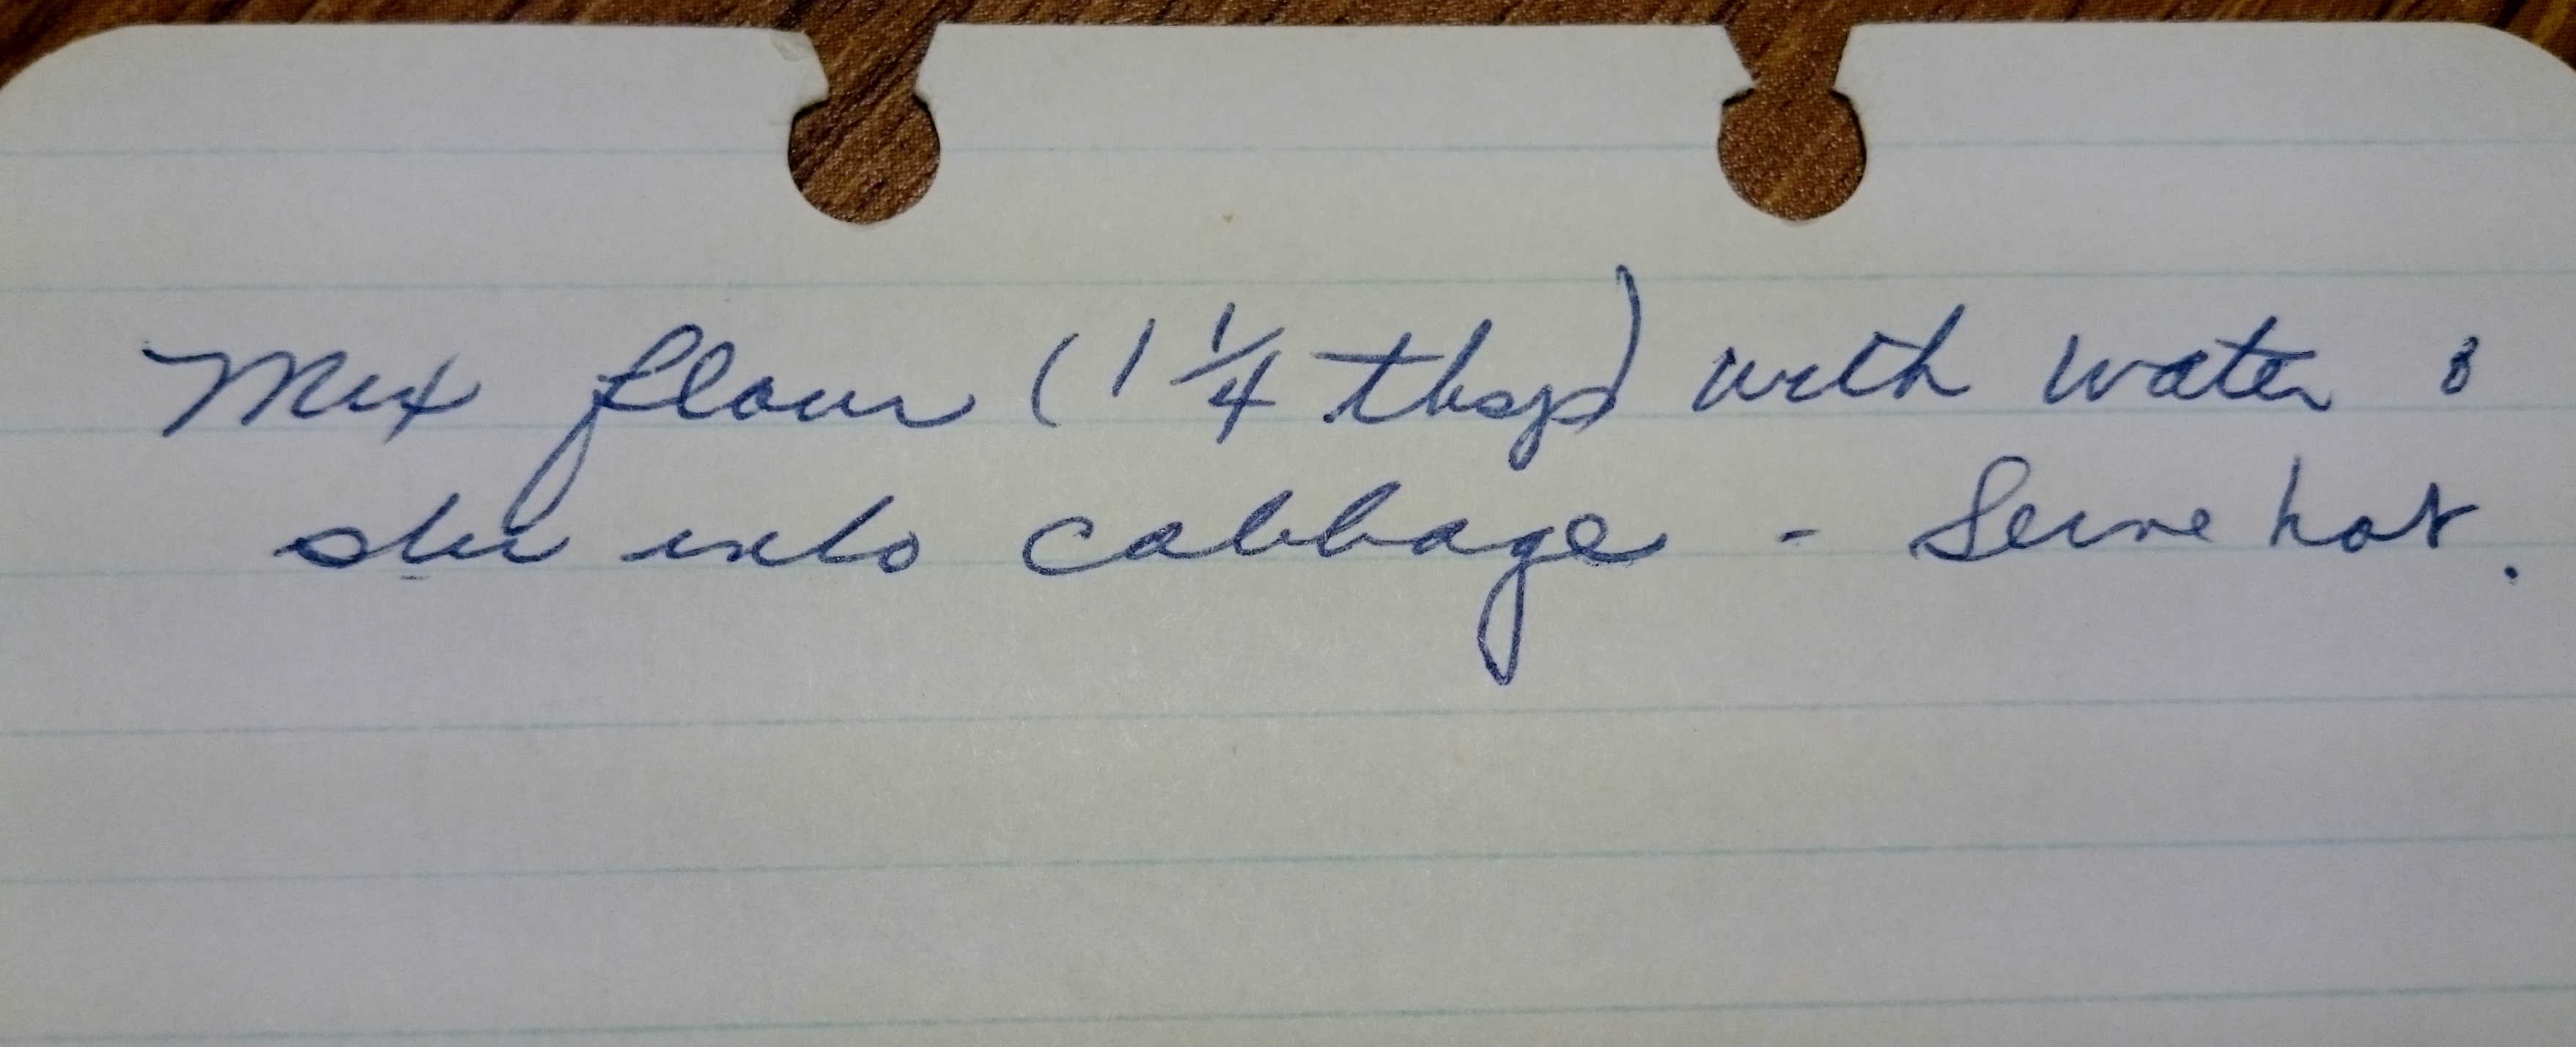 Mix flour (1 1/4 tbsp) with water &
stir into cabbage - Serve hot.